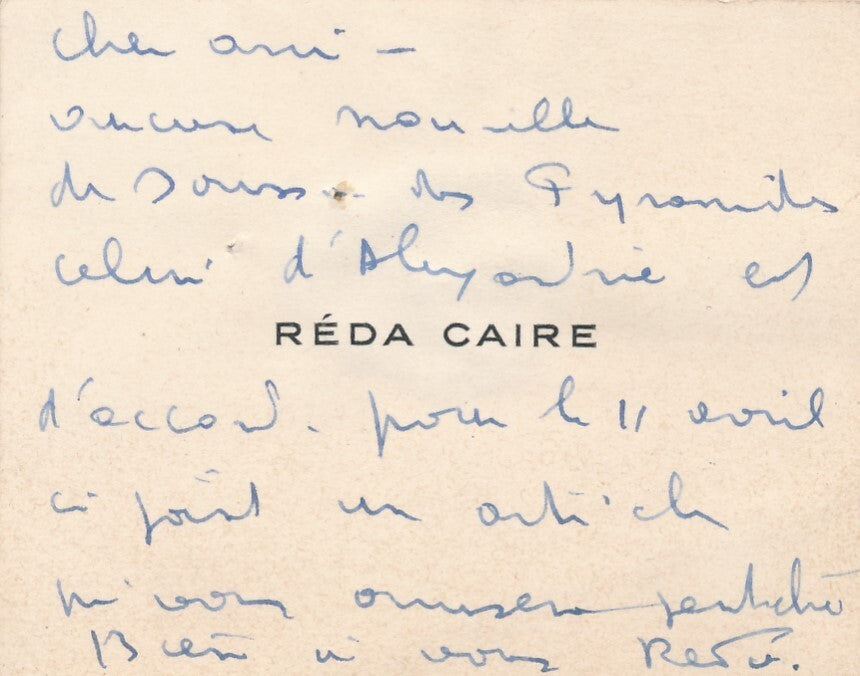 cher ami -
aucune nouvelle
de des Pyramides
celui d'Alexandrie est
RÉDA CAIRE
d'accord. pour le 11 avril
ci joint un article
qui vous amusera peut-être
Bien à vous Réda.